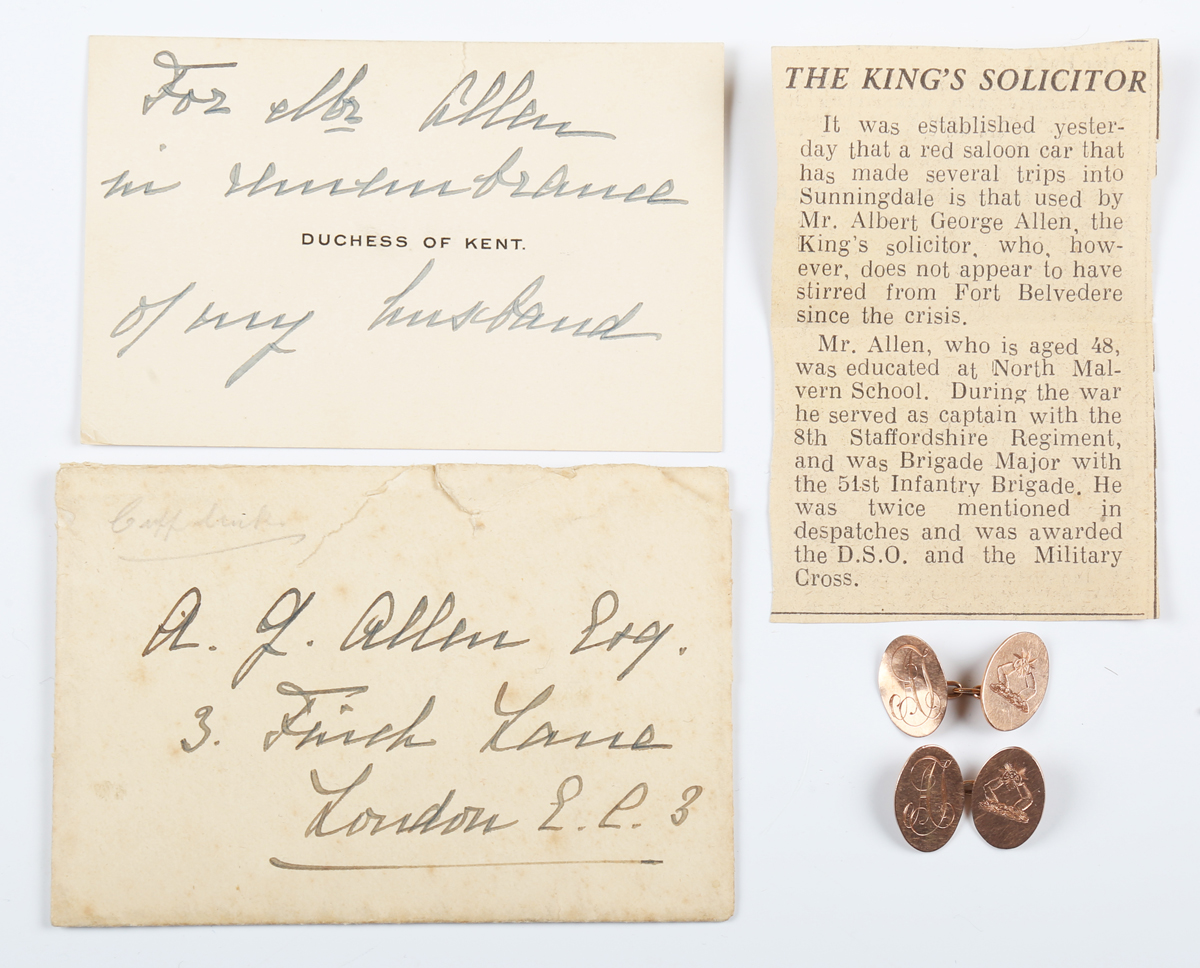 For Mr Allen
in remembrance
DUCHESS OF KENT.
of my husband
THE KING'S SOLICITOR
It was established yester-
day that a red saloon car that
has made several trips into
Sunningdale is that used by
Mr. Albert George Allen, the
King's solicitor, who, how-
ever, does not appear to have
stirred from Fort Belvedere
since the crisis.
Mr. Allen, who is aged 48,
was educated at North Mal-
vern School. During the war
he served as captain with the
8th Staffordshire Regiment,
and was Brigade Major with
the 51st Infantry Brigade. He
was twice mentioned in
despatches and was awarded
the D.S.O. and the Military
Cross.
A. G. Allen Esq.
3. Finch Lane
London E. C. 3